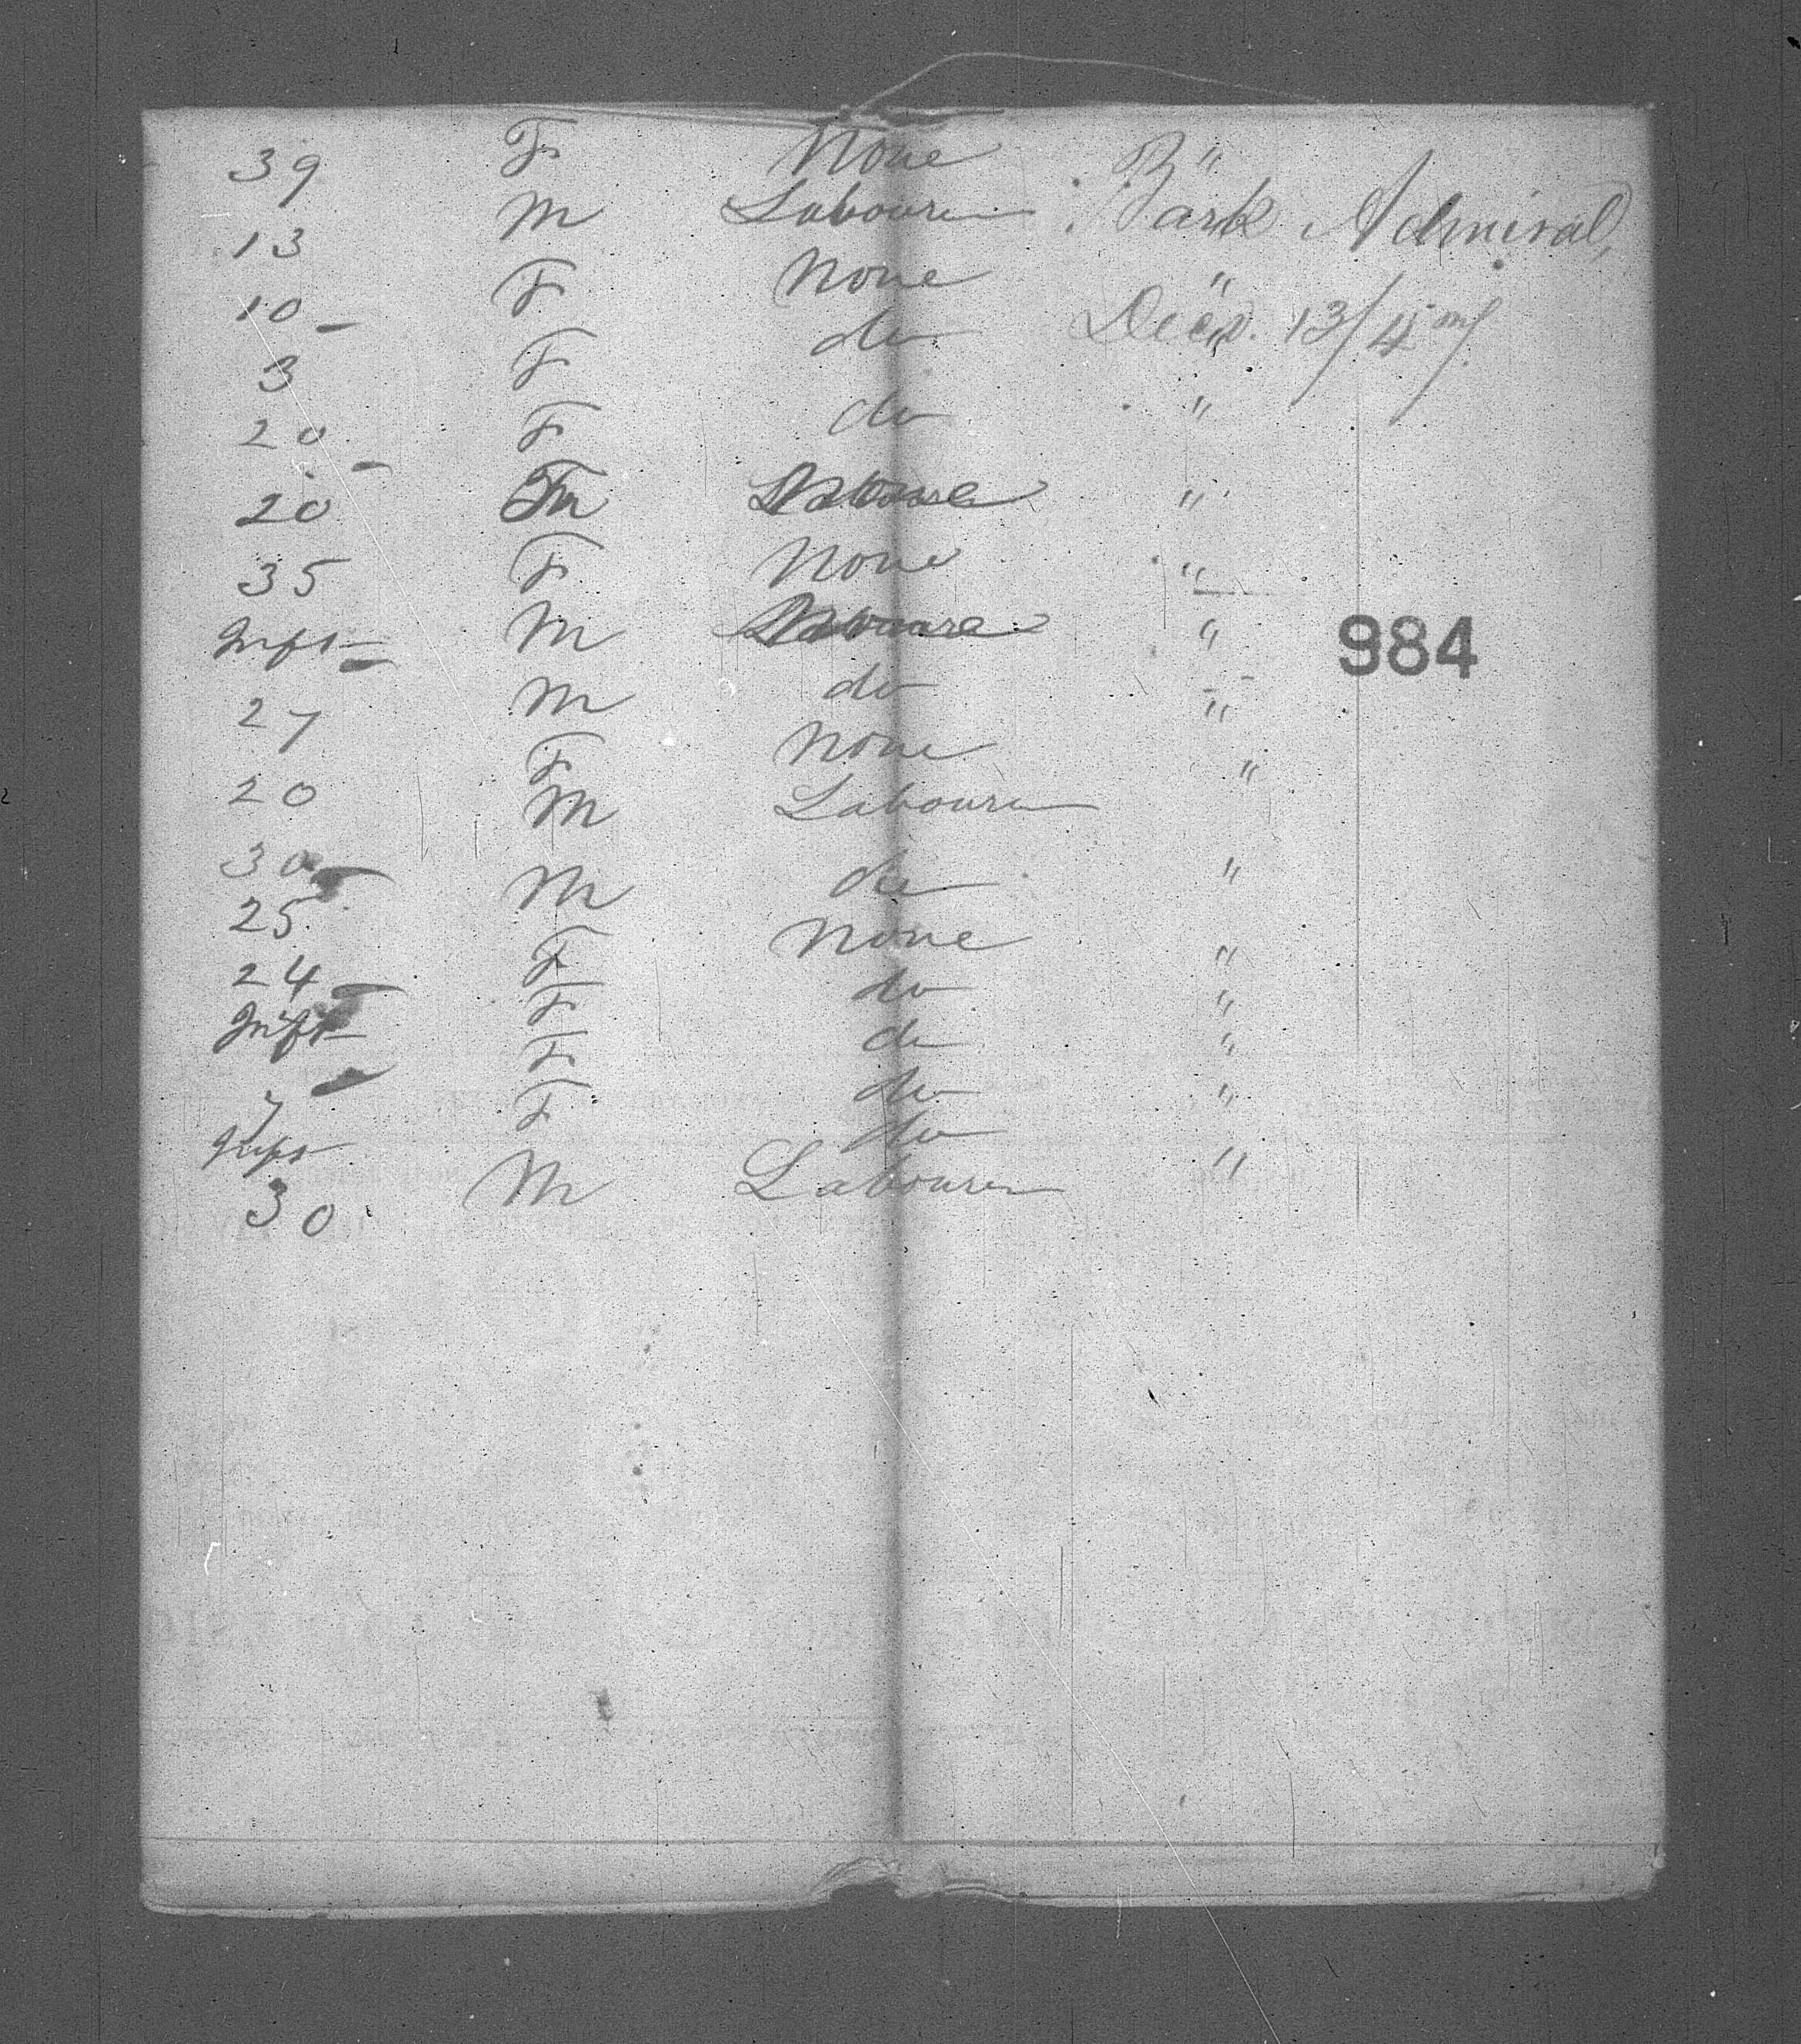 39 F None "
13 M Labourer Bark Admiral,
10 F None "
3 F do Decr. 13/45
20 F do "
20 M "
35 F None "
Inft M "
984
27 M do "
20 F None "
30 M Labourer
25 M do "
24 F None "
Inft F do "
7 F do "
Inft F do "
do
30 M Labourer "